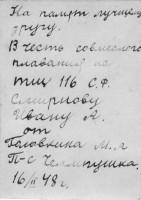 На память лучшему
другу.
В честь совместного
плавания на
тщ 116 С.Ф.
Смирнову
Ивану Я.
от
М.Я
П-с Чемпушка.
16/II 48 г.